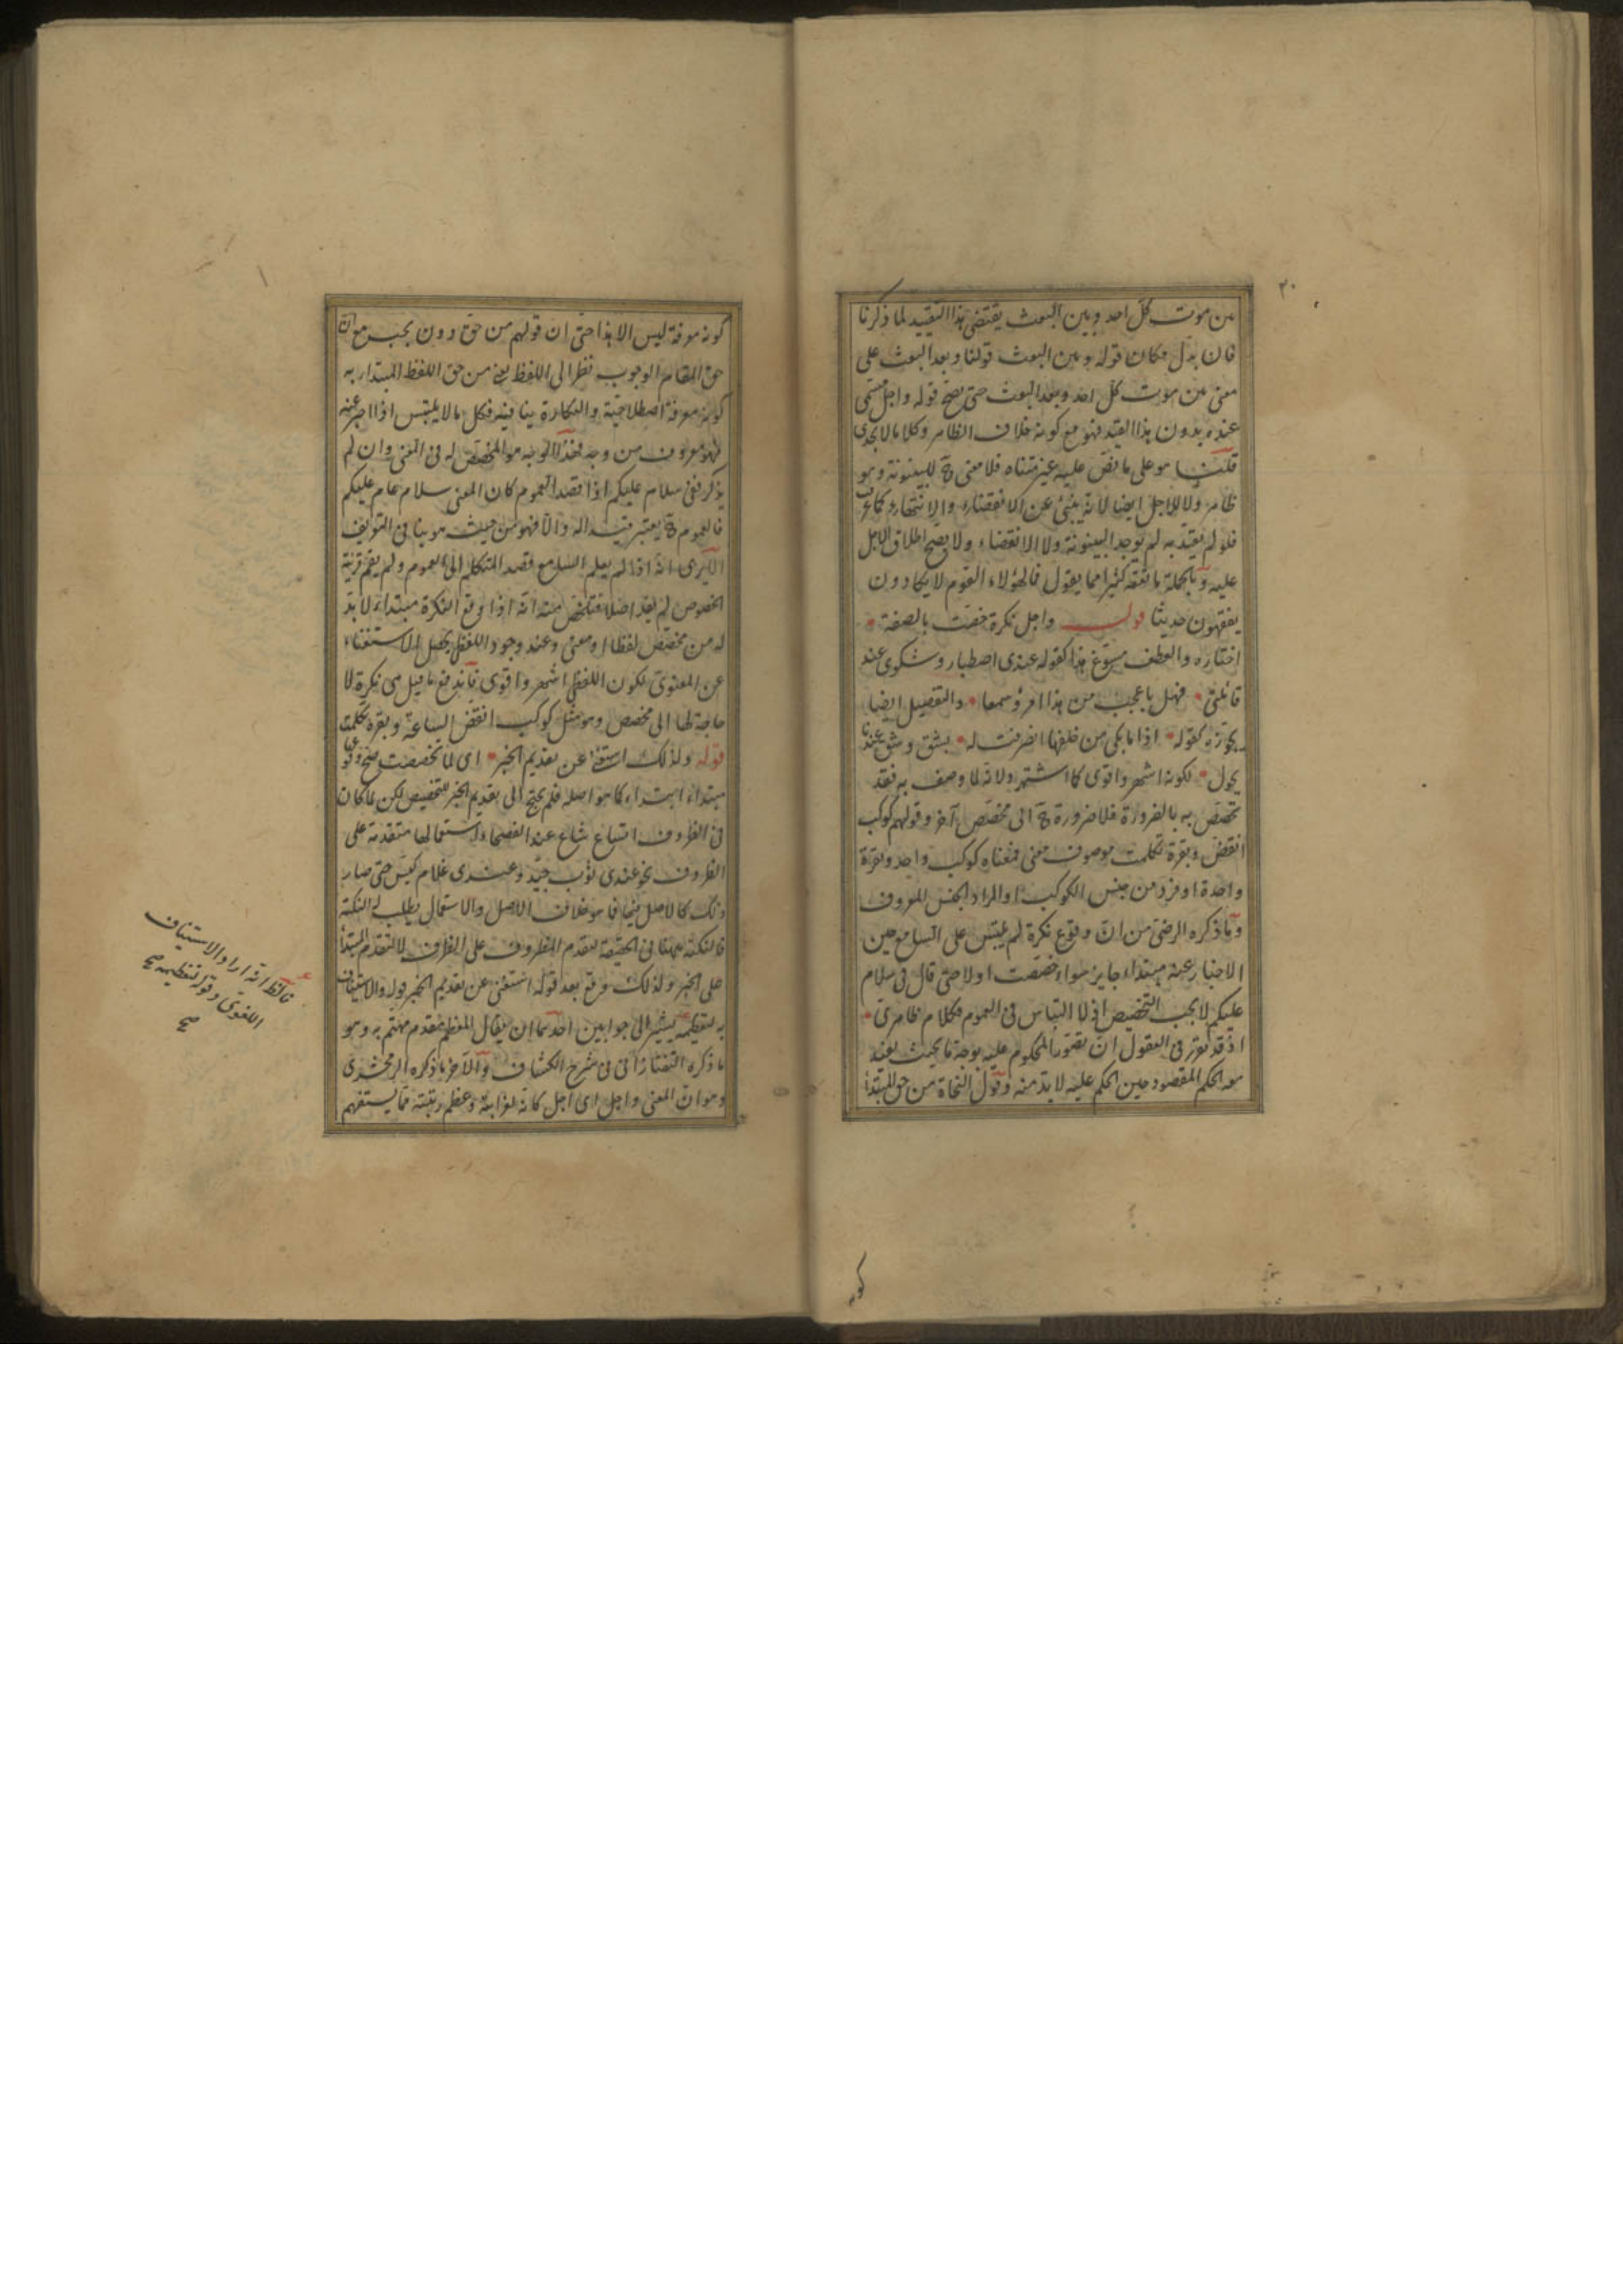 ٣٠
من موت كل احد وبين البعث يقتضى هذا التقييد لما ذكرنا
فان بدل مكان قوله وبين البعث قولنا وبعد البعث على
معنى من موت كل احد وبعد البعث حتى يصح قوله واجل مسمى
عنده بدون هذا القيد فهو مع كونه خلاف الظاهر وكلاما لا يجدى
قلت هو على ما نص عليه غير متناه فلا معنى ح للبينونة وهو
ظاهر ولا للاجل ايضا لانه ينبئ عن الانقضاء والانتهاء كما عرف
فلو لم يقيد به لم توجد البينونة ولا الانقضاء ولا يصح اطلاق الاجل
عليه وبالجملة ما نفقه كثيرا مما يقول فمالهؤلاء القوم لا يكادون
يفقهون حديثا قوله واجل نكرة خصت بالصفة
اختاره والعطف مسوغ هذا كقوله عندى اصطبار وشكوى عند
قاتلتى فهل باعجب من هذا امرؤ سمعا والتفصيل ايضا
يجوزه كقوله اذا ما بكى من خلفها انصرفت له بشق وشق عندنا
يحول لكونه اشهر واقوى كما اشتهر ولانه لما وصف به فقد
تخصص به بالضرورة فلا ضرورة ح الى مخصص آخر وقولهم كوكب
انقض وبقرة تكلمت موصوف معنى فمعناه كوكب واحد وبقرة
واحدة او فرد من جنس الكوكب او المراد الجنس المعروف
وما ذكره الرضى من ان وقوع نكرة لم يلتبس على السامع حين
الاخبار عنه مبتداء جايز سواء خصصت اولا حتى قال فى سلام
عليكم لا يجب التخصيص اذ لا التباس فى العموم فكلام ظاهرى
اذ قد تقرر فى العقول ان تصور المحكوم عليه بوجه ما بحيث يفيد
معه الحكم المقصود حين الحكم عليه لا بد منه وقول النحاة من حق المبتدأ
كونه
كونه معرفة ليس الا هذا حتى ان قولهم من حق دون يجب مع ان
حق المقام الوجوب نظرا الى اللفظ يعنى من حق اللفظ المبتداء به
كونه معرفة اصطلاحية والنكارة ينافيه فكل ما لا يلتبس اذا اخبر عنه
فهو معروف من وجه فهذا الوجه هو المخصص له فى المعنى وان لم
يذكر ففى سلام عليكم اذا قصد العموم كان المعنى سلام عام عليكم
فالعموم ح يعتبر قيدا له والا فهو من حيث هو ينافى التعريف
الا يرى انه اذا لم يعلم السامع قصد المتكلم الى العموم ولم يقم قرينة
الخصوص لم يفد اصلا فتلخص منه انه اذا وقع النكرة مبتداء لا بد
له من مخصص لفظا او معنى وعند وجود اللفظى يحصل الاستغناء
عن المعنوى لكون اللفظى اشهر واقوى فاندفع ما قيل من نكرة لا
حاجة لها الى مخصص وهو مثل كوكب انقض الساعة وبقرة تكلمت
قوله ولذلك استغنى عن تقديم الخبر اى لما تخصصت صح وقوعها
مبتداء ابتداء كما هو اصله فلم يحتج الى تقديم الخبر للتخصيص لكن لما كان
فى الظروف اتساع شاع عند الفصحاء استعمالها متقدمة على
الظروف نحو عندى ثوب جيد وعندى غلام كيس حتى صار
ذلك كالاصل فيها فما هو خلاف الاصل والاستعمال يطلب له النكتة
فالنكتة ههنا فى الحقيقة لتقدم المظروف على الظرف لا لتقدم المبتدأ
على الخبر ولذلك وقع بعد قوله استغنى عن تقديم الخبر قوله والاستيناف
به لتعظيمه يشير الى جوابين احدهما ان يقال المعظم مقدم مهتم به وهو
ما ذكره التفتازانى فى شرح الكشاف والآخر ما ذكره الزمخشرى
وهو ان المعنى واجل اى اجل كانه لغرابته وعظم رتبته مما يستفهم
فالظ انه اراد الاستيناف
اللغوى وقوله لتعظيمه صح
صح